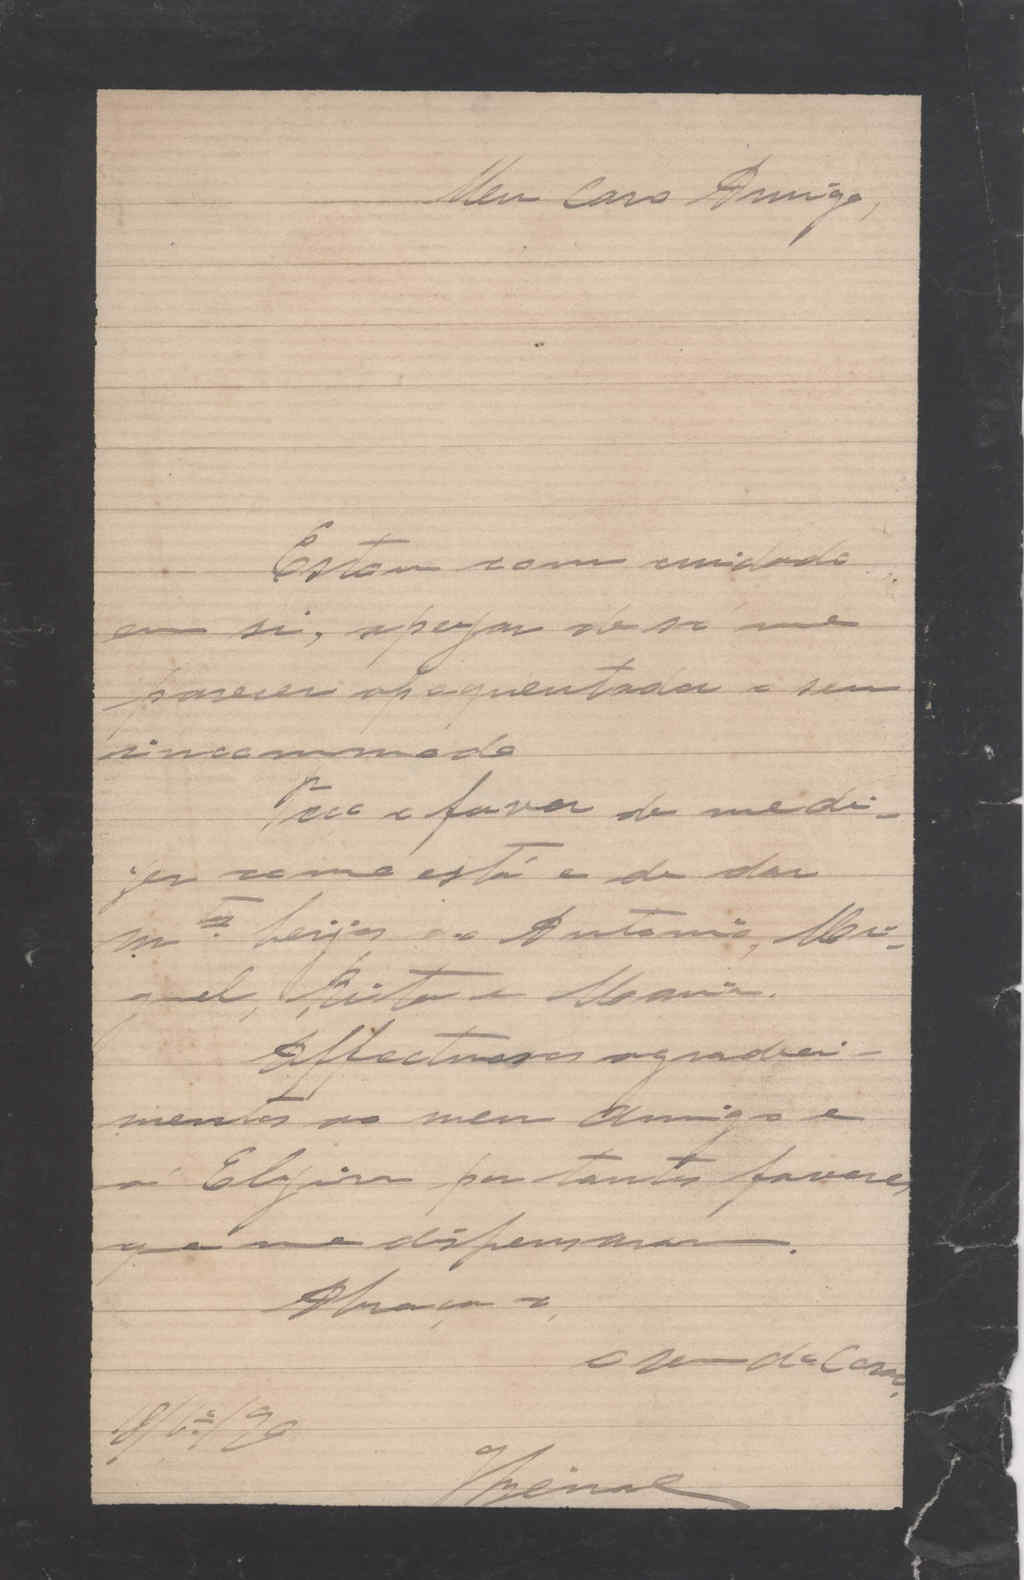 Meu caro Amigo,
Estou com cuidado
em si, apezar de só me
parecer apoquentador o seu
incommodo
Peço o favor de me di-
zer como está e de dar
m.tos beijos ao Antonio, Mi-
guel, Rita e Maria.
Affectuosos agradeci-
mentos ao meu Amigo e
á Elzira por tantos favores
que me dispensaram.
Abraça-o,
o seu do Cor.